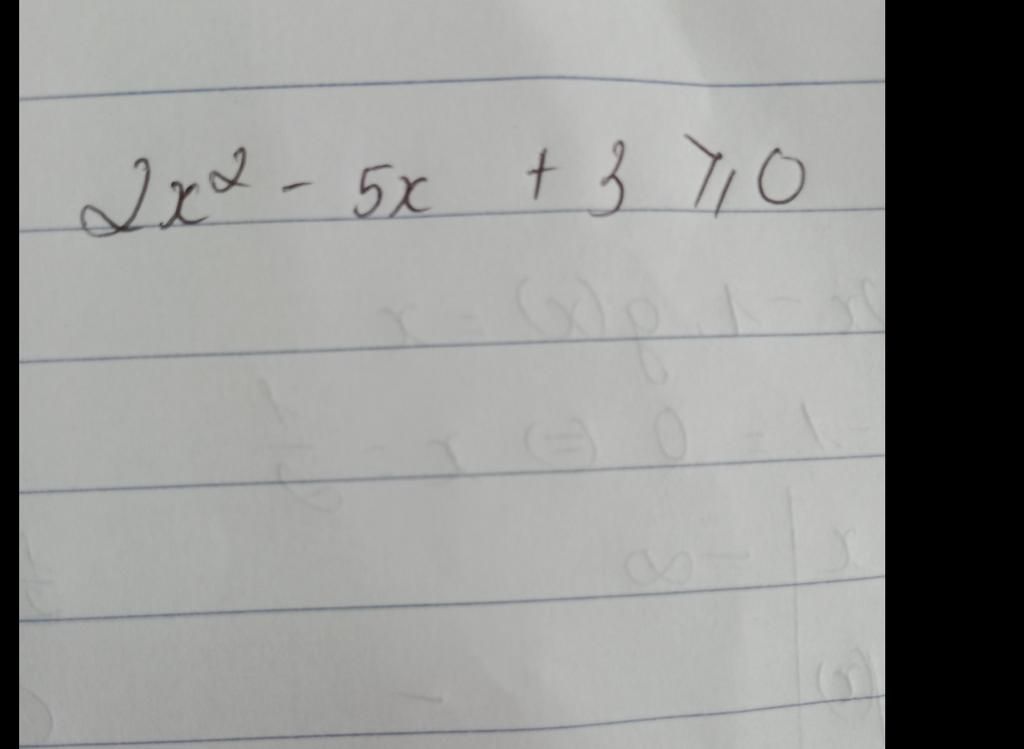 2x² - 5x + 3 ⩾ 0